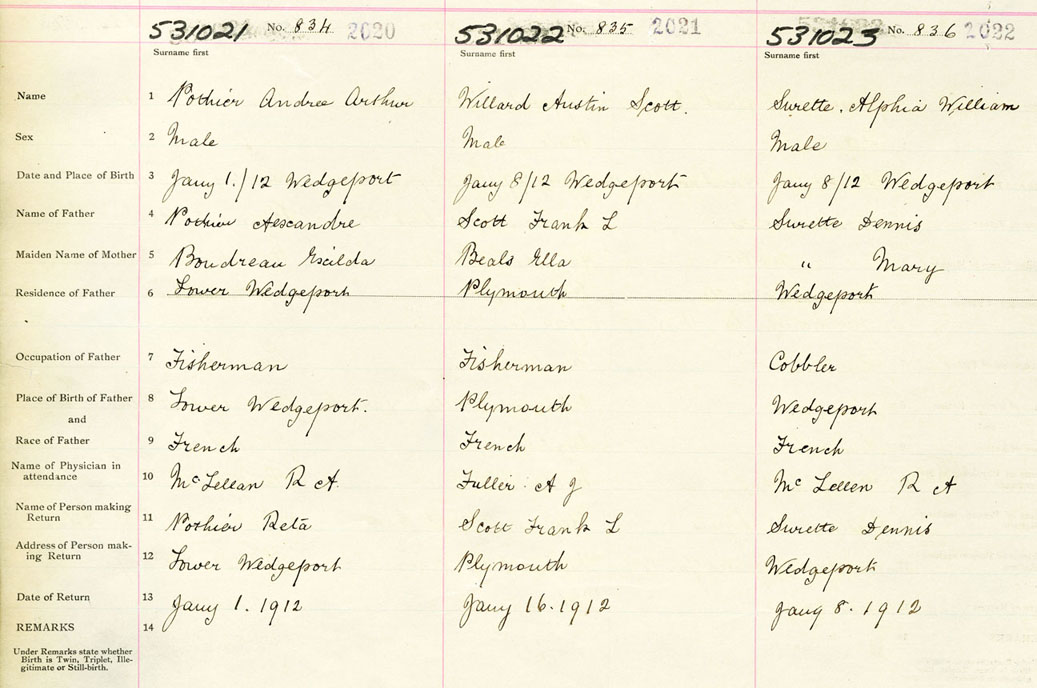 531021 No. 834 2020 531022 No. 835 2021 531023 No. 836 2022
Surname first Surname first Surname first
Name 1 Pothier Andree Arthur Willard Austin Scott. Surette, Alphia William
Sex 2 Male Male Male
Date and Place of Birth 3 Jany 1./12 Wedgeport Jany 8/12 Wedgeport Jany 8/12 Wedgeport
Name of Father 4 Pothier Scott Frank L Surette Dennis
Maiden Name of Mother 5 Boudreau Beals Ella " Mary
Residence of Father 6 Lower Wedgeport Plymouth Wedgeport
Occupation of Father 7 Fisherman Fisherman Cobbler
Place of Birth of Father 8 Lower Wedgeport. Plymouth Wedgeport
and
Race of Father 9 French French French
Name of Physician in
attendance 10 McLellan R A. Fuller. A J Mc Lellen R A
Name of Person making
Return 11 Pothier Reta Scott Frank L Surette Dennis
Address of Person mak-
ing Return 12 Lower Wedgeport Plymouth Wedgeport
Date of Return 13 Jany 1. 1912 Jany 16. 1912 Jany 8. 1912
REMARKS 14
Under Remarks state whether
Birth is Twin, Triplet, Ille-
gitimate or Still-birth.